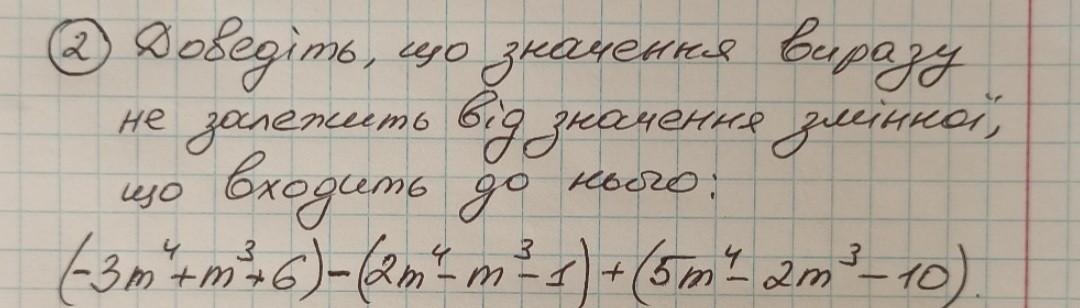 ② Доведіть, що значення виразу
не залежить від значення змінної,
що входить до нього:
(-3m⁴+m³+6)-(2m⁴-m³-1)+(5m⁴-2m³-10).